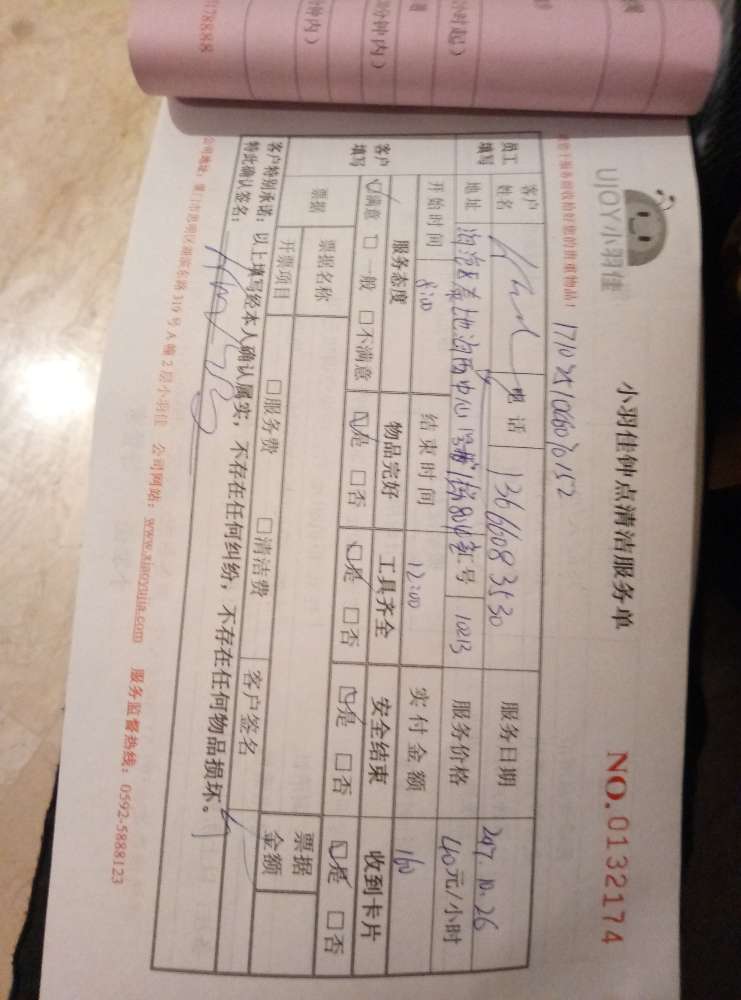 UJOY小羽佳
小羽佳钟点清洁服务单
NO.0132174
服务前收拾好您的贵重物品！
员工填写
客户姓名
电话 13666083530
服务日期 2017.10.26
地址
号 10213
服务价格 40元/小时
开始时间 8:00
结束时间 12:00
实付金额 160
客户填写
服务态度 物品完好 工具齐全 安全结束 收到卡片
☑满意 □一般 □不满意 ☑是 □否 ☑是 □否 ☑是 □否 ☑是 □否
票据
票据名称 □服务费 □清洁费
票据金额
开票项目
客户签名
客户特别承诺：以上填写经本人确认属实，不存在任何纠纷，不存在任何物品损坏。
特此确认签名：
公司地址：厦门市思明区湖滨东路319号A幢2层小羽佳 公司网站：www.xiaoyujia.com 服务监督热线：0592-5888123